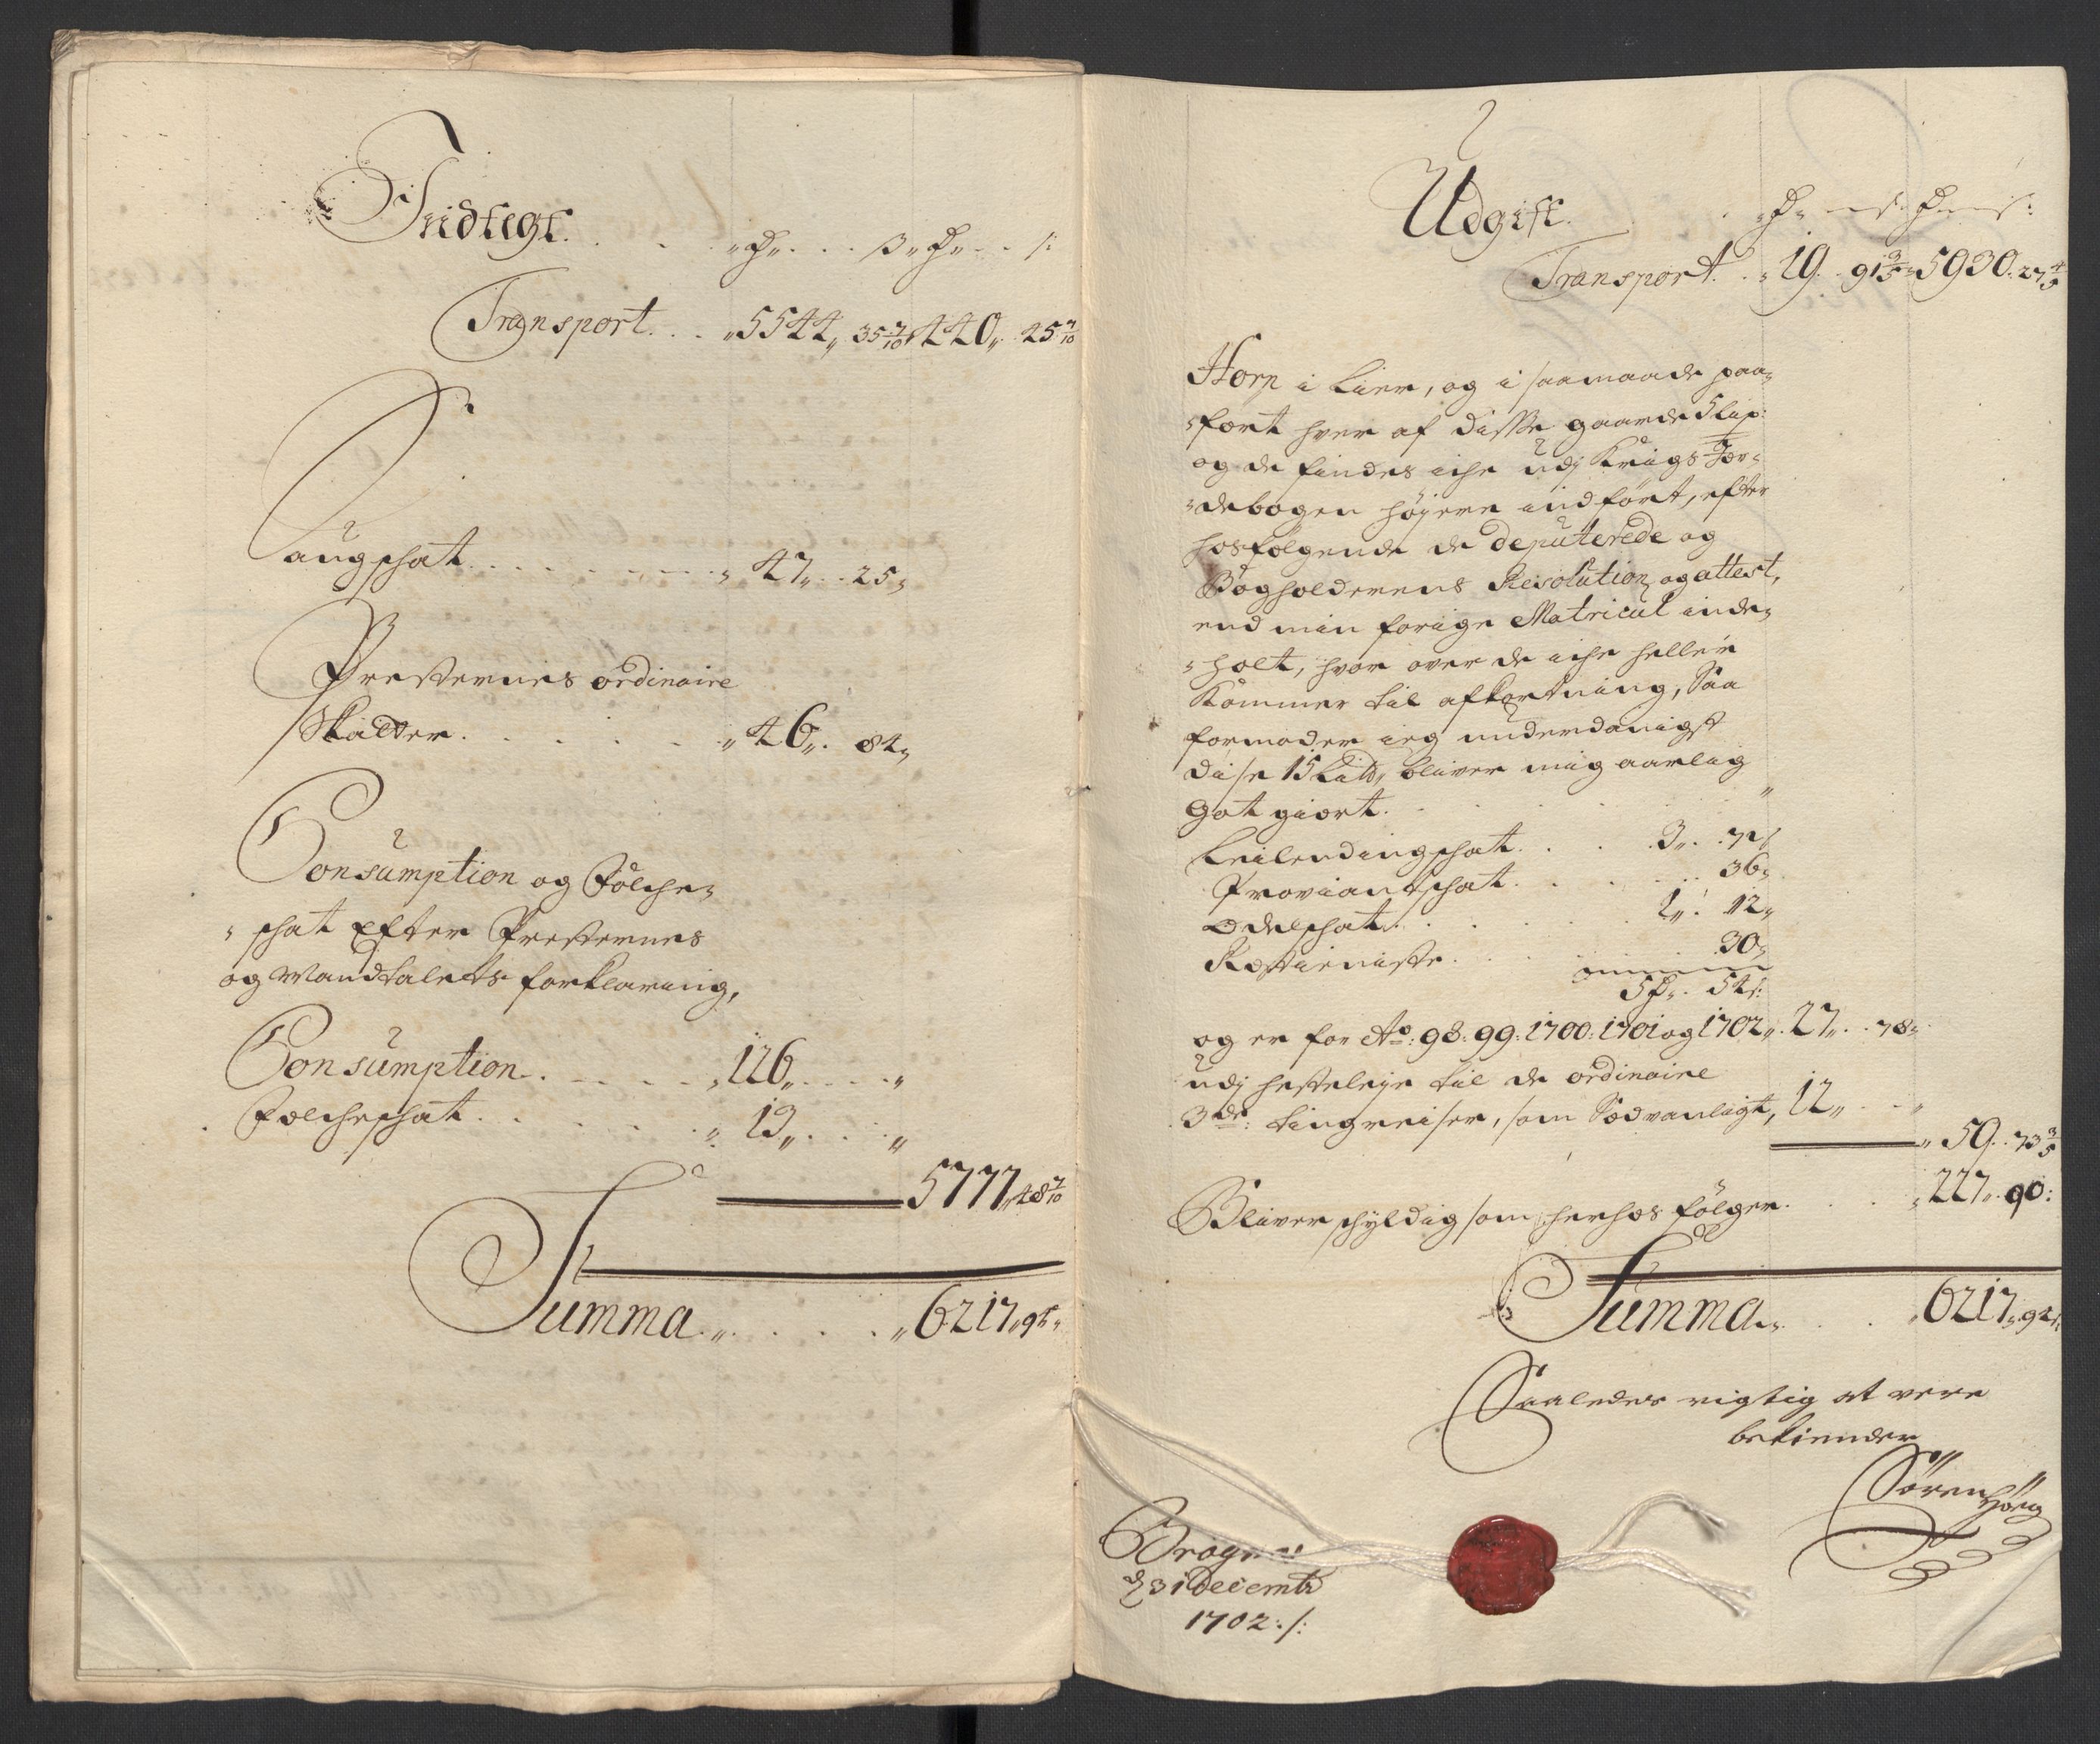 Indtegt. . . . „ ₰ „ . . . ß „ ₰ „ . . /:
Transport. . . „ 5544 „ 35 7/10 „ 440 „ 45 3/10
Laugschat. . . . . . . . . „ 47 „ . . 25 „
Presternes ordinaire
Skatter. . . . . . „ 46 „ . 84 „
Consumption og Folche„
„ schat Efter Presternes
og Mandtalets forklaring,
Consumption. . . . . . „ 126 „ . . . . „
Folcheschat. . . . . . . „ 13 „ . . . „
5777 „ 48 7/10
Summa. „ . . . . . „ 6217 „ 94 „
Udgift.
Transport. . „ 19 . . 91 3/5 „ 5930 . 27 4/5
Horn i Lier, og i saamaade paa„
„ fort hver af disse gaarde 5 Lisp:
og de findes iche udj Krigs Jor„
„ debogen höjere indfört, efter
hosfölgende de deputerede og
Bogholderens Resolution og attest,
end min forige Matricul inde„
„ holt, hvor over de iche heller
Kommer til afkortning, Saa
formoder ieg underdanigst
dise 15 Lisp, bliver mig aarlig
Got giort. . . . . . . „
Leilendingschat. . . . 3 „ . . 72 ß
Proviantschat. . . . . . . 36 „
Odelschat. . . . . . . 1 „ . 12 „
Rostieniste. . . . . . . 30 „
5 ₰ „ . 54 ß:
og er for Ao: 98: 99: 1700: 1701 og 1702 „ . 27 „ . . 78 „
udj hesteleye til de ordinaire
3de: tingreiser, som Sedvanligt, 12 „ . . . „
„ 59 . . 73 3/5
Bliver schyldig som herhos fölger. . . . „ 227 „ . 90 :
Summa „ . . . . „ 6217 „ 94 ß:
Saaledes rigtig at vere
bekiender
Sören Hörg
Bragnes
d 31 Decembr
1702 ./: